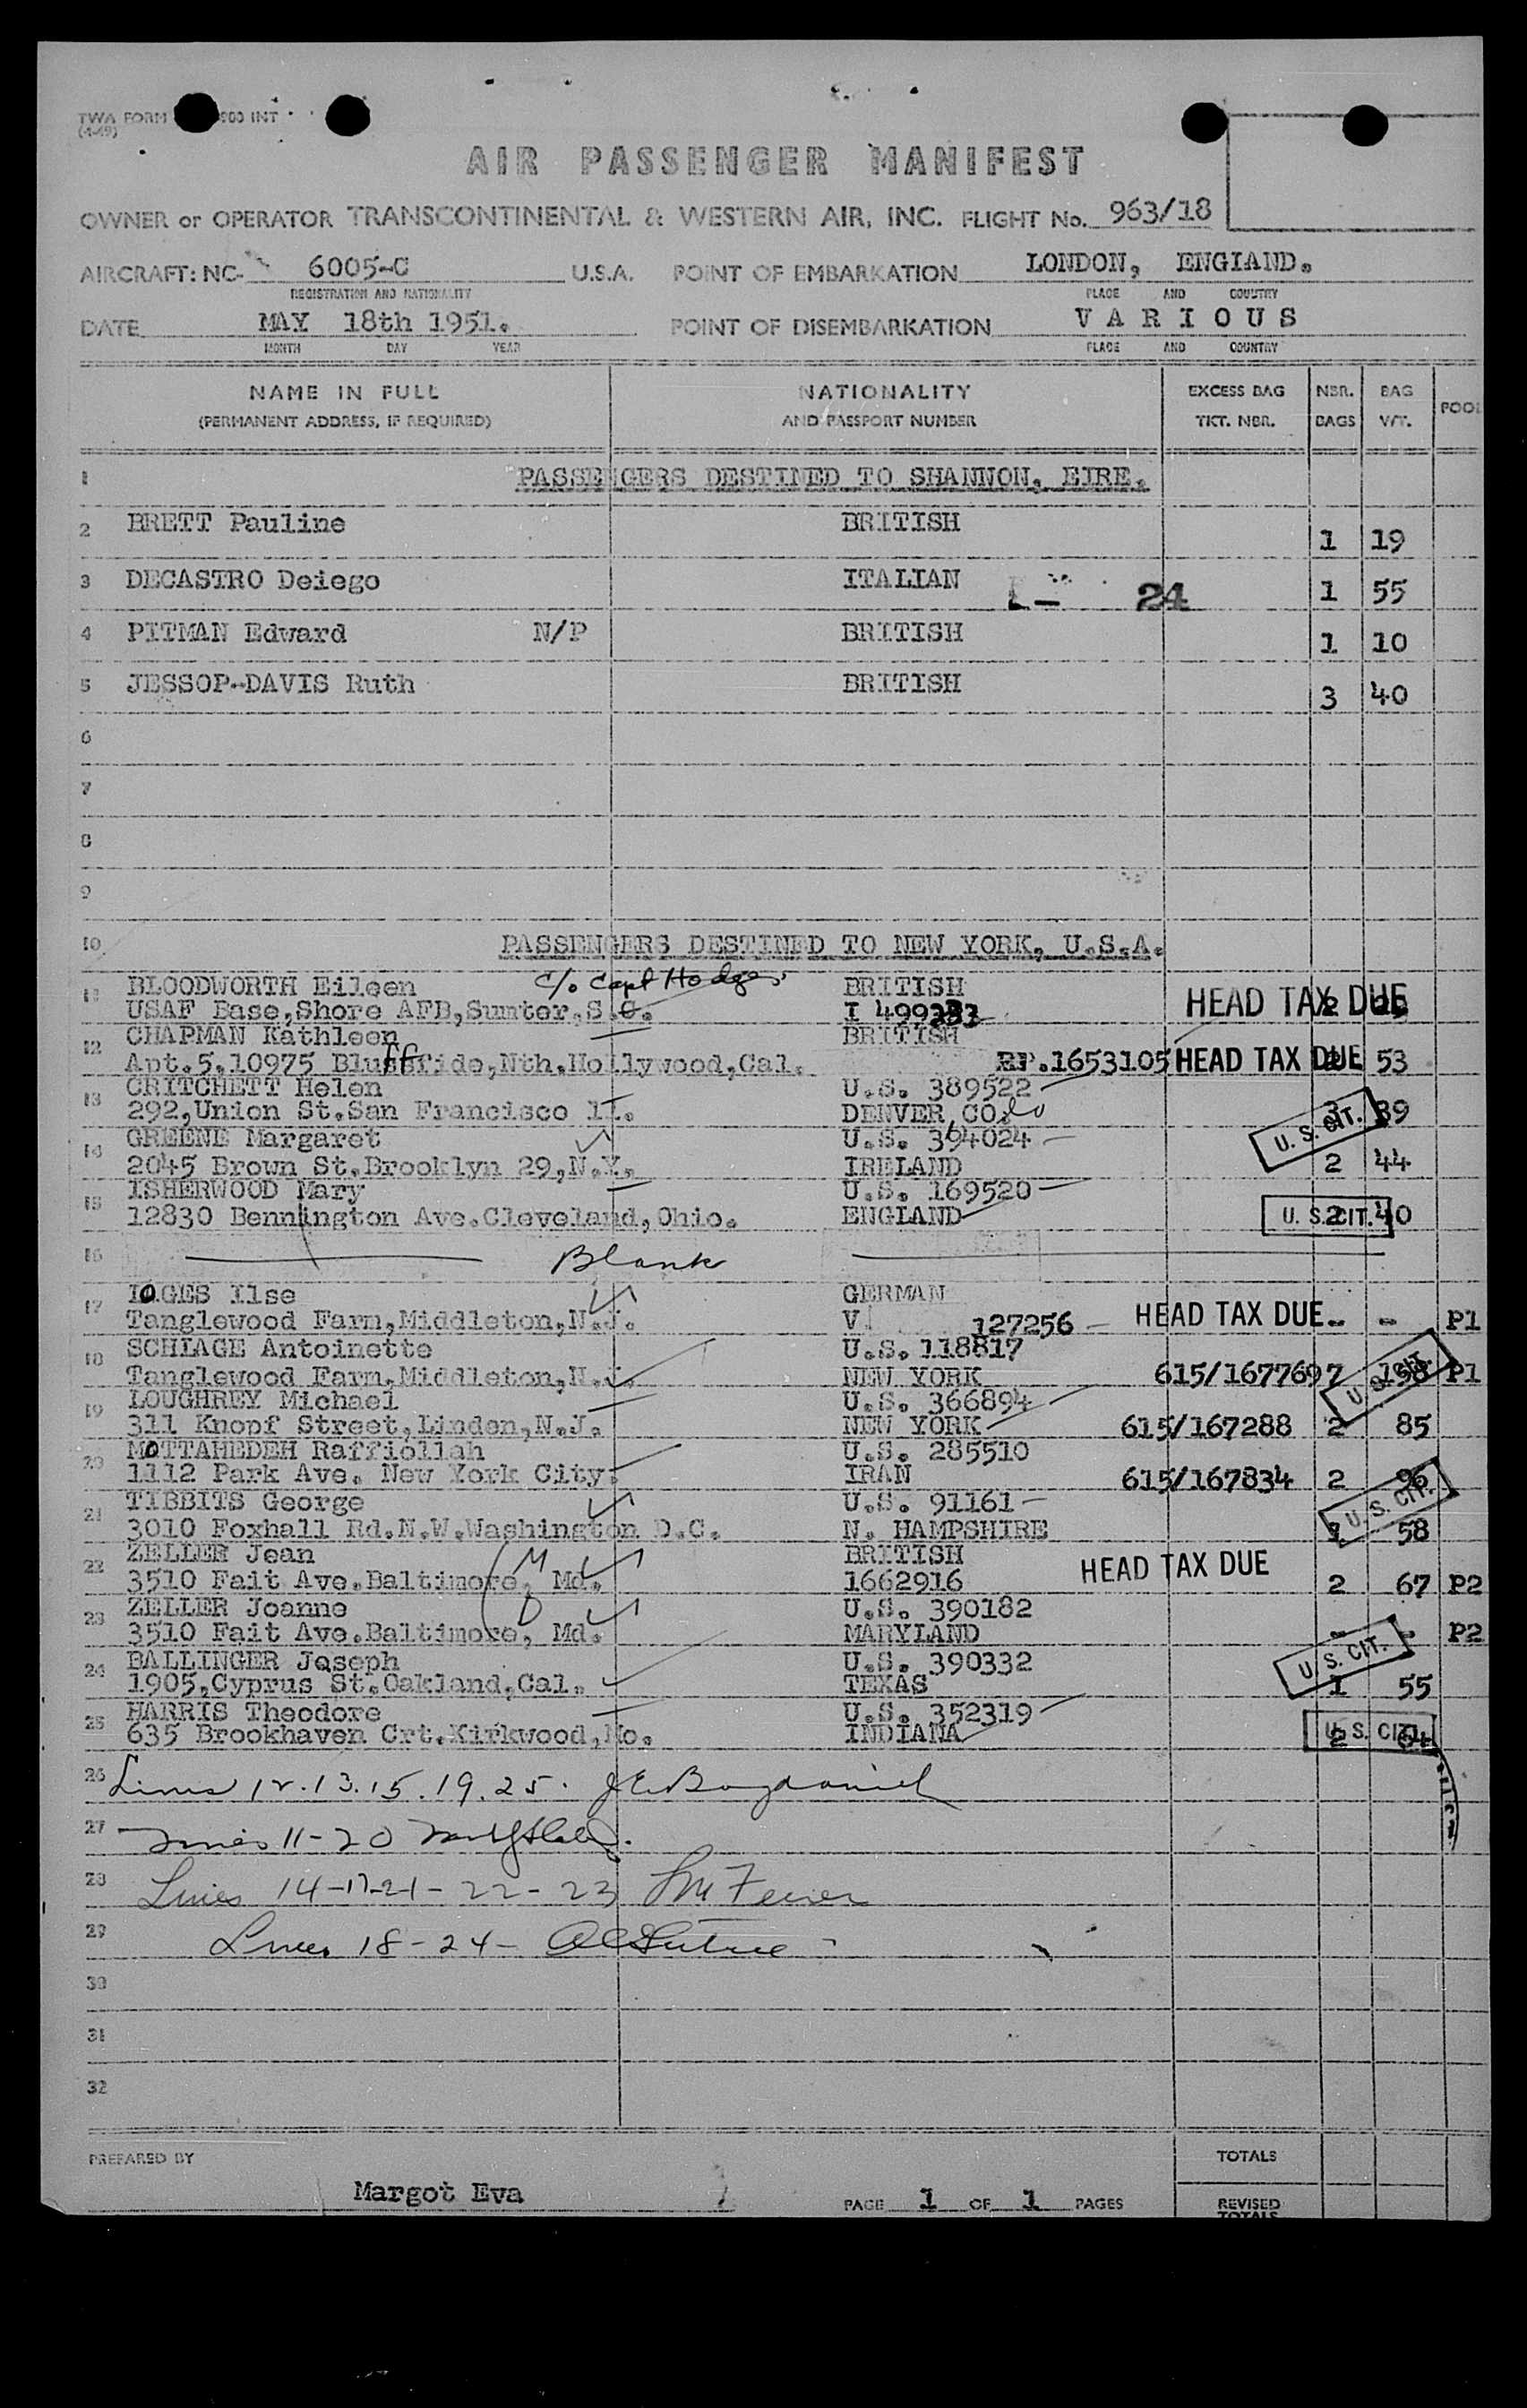 TWA FORM 900 INT
(4-49)
AIR PASSENGER MANIFEST
OWNER or OPERATOR TRANSCONTINENTAL & WESTERN AIR, INC. FLIGHT No. 963/18
AIRCRAFT: NC- 6005-C U.S.A. POINT OF EMBARKATION LONDON, ENGLAND.
REGISTRATION AND NATIONALITY PLACE AND COUNTRY
DATE MAY 18th 1951. POINT OF DISEMBARKATION VARIOUS
MONTH DAY YEAR PLACE AND COUNTRY
NAME IN FULL NATIONALITY EXCESS BAG NBR. BAG POOL
(PERMANENT ADDRESS, IF REQUIRED) AND PASSPORT NUMBER TKT. NBR. BAGS WT.
1 PASSENGERS DESTINED TO SHANNON, EIRE.
2 BRETT Pauline BRITISH 1 19
3 DECASTRO Deiego ITALIAN 24 1 55
4 PITMAN Edward N/P BRITISH 1 10
5 JESSOP-DAVIS Ruth BRITISH 3 40
6
7
8
9
10 PASSENGERS DESTINED TO NEW YORK, U.S.A.
11 BLOODWORTH Eileen c/o Capt Hodges BRITISH
USAF Base,Shore AFB,Sumter,S.C. I 499333 HEAD TAX DUE 2
12 CHAPMAN Kathleen BRITISH
Apt.5,10975 Bluffside,Nth.Hollywood,Cal. RP.1653105 HEAD TAX DUE 53
13 CRITCHETT Helen U.S. 389522
292,Union St.San Francisco 11. DENVER, COLO U. S. CIT. 3 39
14 GREENE Margaret U.S. 364024
2045 Brown St.Brooklyn 29,N.Y. IRELAND 2 44
15 ISHERWOOD Mary U.S. 169520
12830 Bennington Ave.Cleveland,Ohio. ENGLAND U. S. CIT. 2 40
16 Blank
17 LOGES Ilse GERMAN
Tanglewood Farm,Middleton,N.J. V 127256 HEAD TAX DUE - - P1
18 SCHLAGE Antoinette U.S. 118817
Tanglewood Farm,Middleton,N.J. NEW YORK 615/167769 7 198 P1 U. S. CIT.
19 LOUGHREY Michael U.S. 366894
311 Knopf Street,Linden,N.J. NEW YORK 615/167288 2 85
20 MOTTAHEDEH Raffiollah U.S. 285510
1112 Park Ave. New York City. IRAN 615/167834 2 96
21 TIBBITS George U.S. 91161 U. S. CIT.
3010 Foxhall Rd.N.W.Washington D.C. N. HAMPSHIRE 58
22 ZELLER Jean (M BRITISH HEAD TAX DUE
3510 Fait Ave.Baltimore, Md. 1662916 2 67 P2
23 ZELLER Joanne (D U.S. 390182
3510 Fait Ave.Baltimore, Md. MARYLAND - - P2
24 BALLINGER Joseph U.S. 390332 U. S. CIT.
1905,Cyprus St.Oakland,Cal. TEXAS 1 55
25 HARRIS Theodore U.S. 352319
635 Brookhaven Crt.Kirkwood,Mo. INDIANA U. S. CIT. 2
26 Lines 12.13.15.19.25.
27 Lines 11-20
28 Lines 14-17-21-22-23
29 Lines 18-24-
30
31
32
PREPARED BY TOTALS
Margot Eva PAGE 1 OF 1 PAGES REVISED
TOTALS